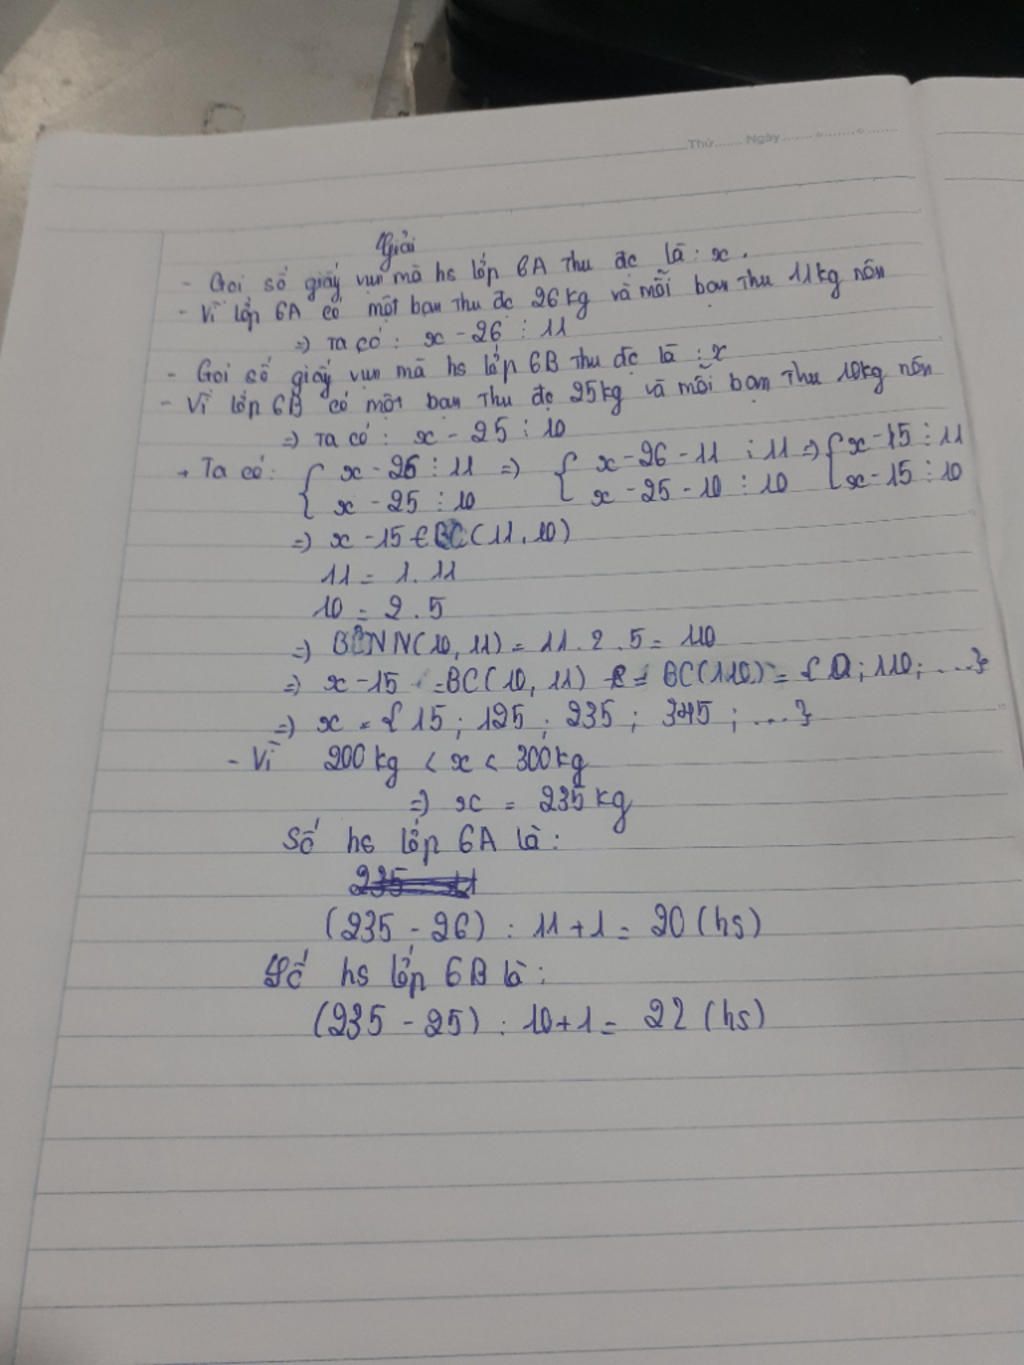 Thứ....... Ngày.......
Giải
- Gọi số giấy vụn mà hs lớp 6A thu đc là : x.
- Vì lớp 6A có một bạn thu đc 26 kg và mỗi bạn thu 11kg nên
=> Ta có : x - 26 ⋮ 11
- Gọi số giấy vụn mà hs lớp 6B thu đc là : x
- Vì lớp 6B có một bạn thu đc 25kg và mỗi bạn thu 10kg nên
=> Ta có : x - 25 ⋮ 10
+ Ta có: { x - 26 ⋮ 11 => { x - 26 - 11 ⋮ 11 => { x - 15 ⋮ 11
x - 25 ⋮ 10 x - 25 - 10 ⋮ 10 x - 15 ⋮ 10
=> x - 15 ∈ BC (11, 10)
11 = 1. 11
10 = 2 . 5
=> BCNN(10, 11) = 11. 2 . 5 = 110
=> x - 15 = BC( 10, 11) = BC(110) = { 0; 110; ...}
=> x = { 15 ; 125 ; 235 ; 345 ; ...}
- Vì 200 kg < x < 300kg
=> x = 235 kg
Số hs lớp 6A là :
(235 - 26) : 11 + 1 = 20 (hs)
Số hs lớp 6B là :
(235 - 25) : 10 + 1 = 22 (hs)